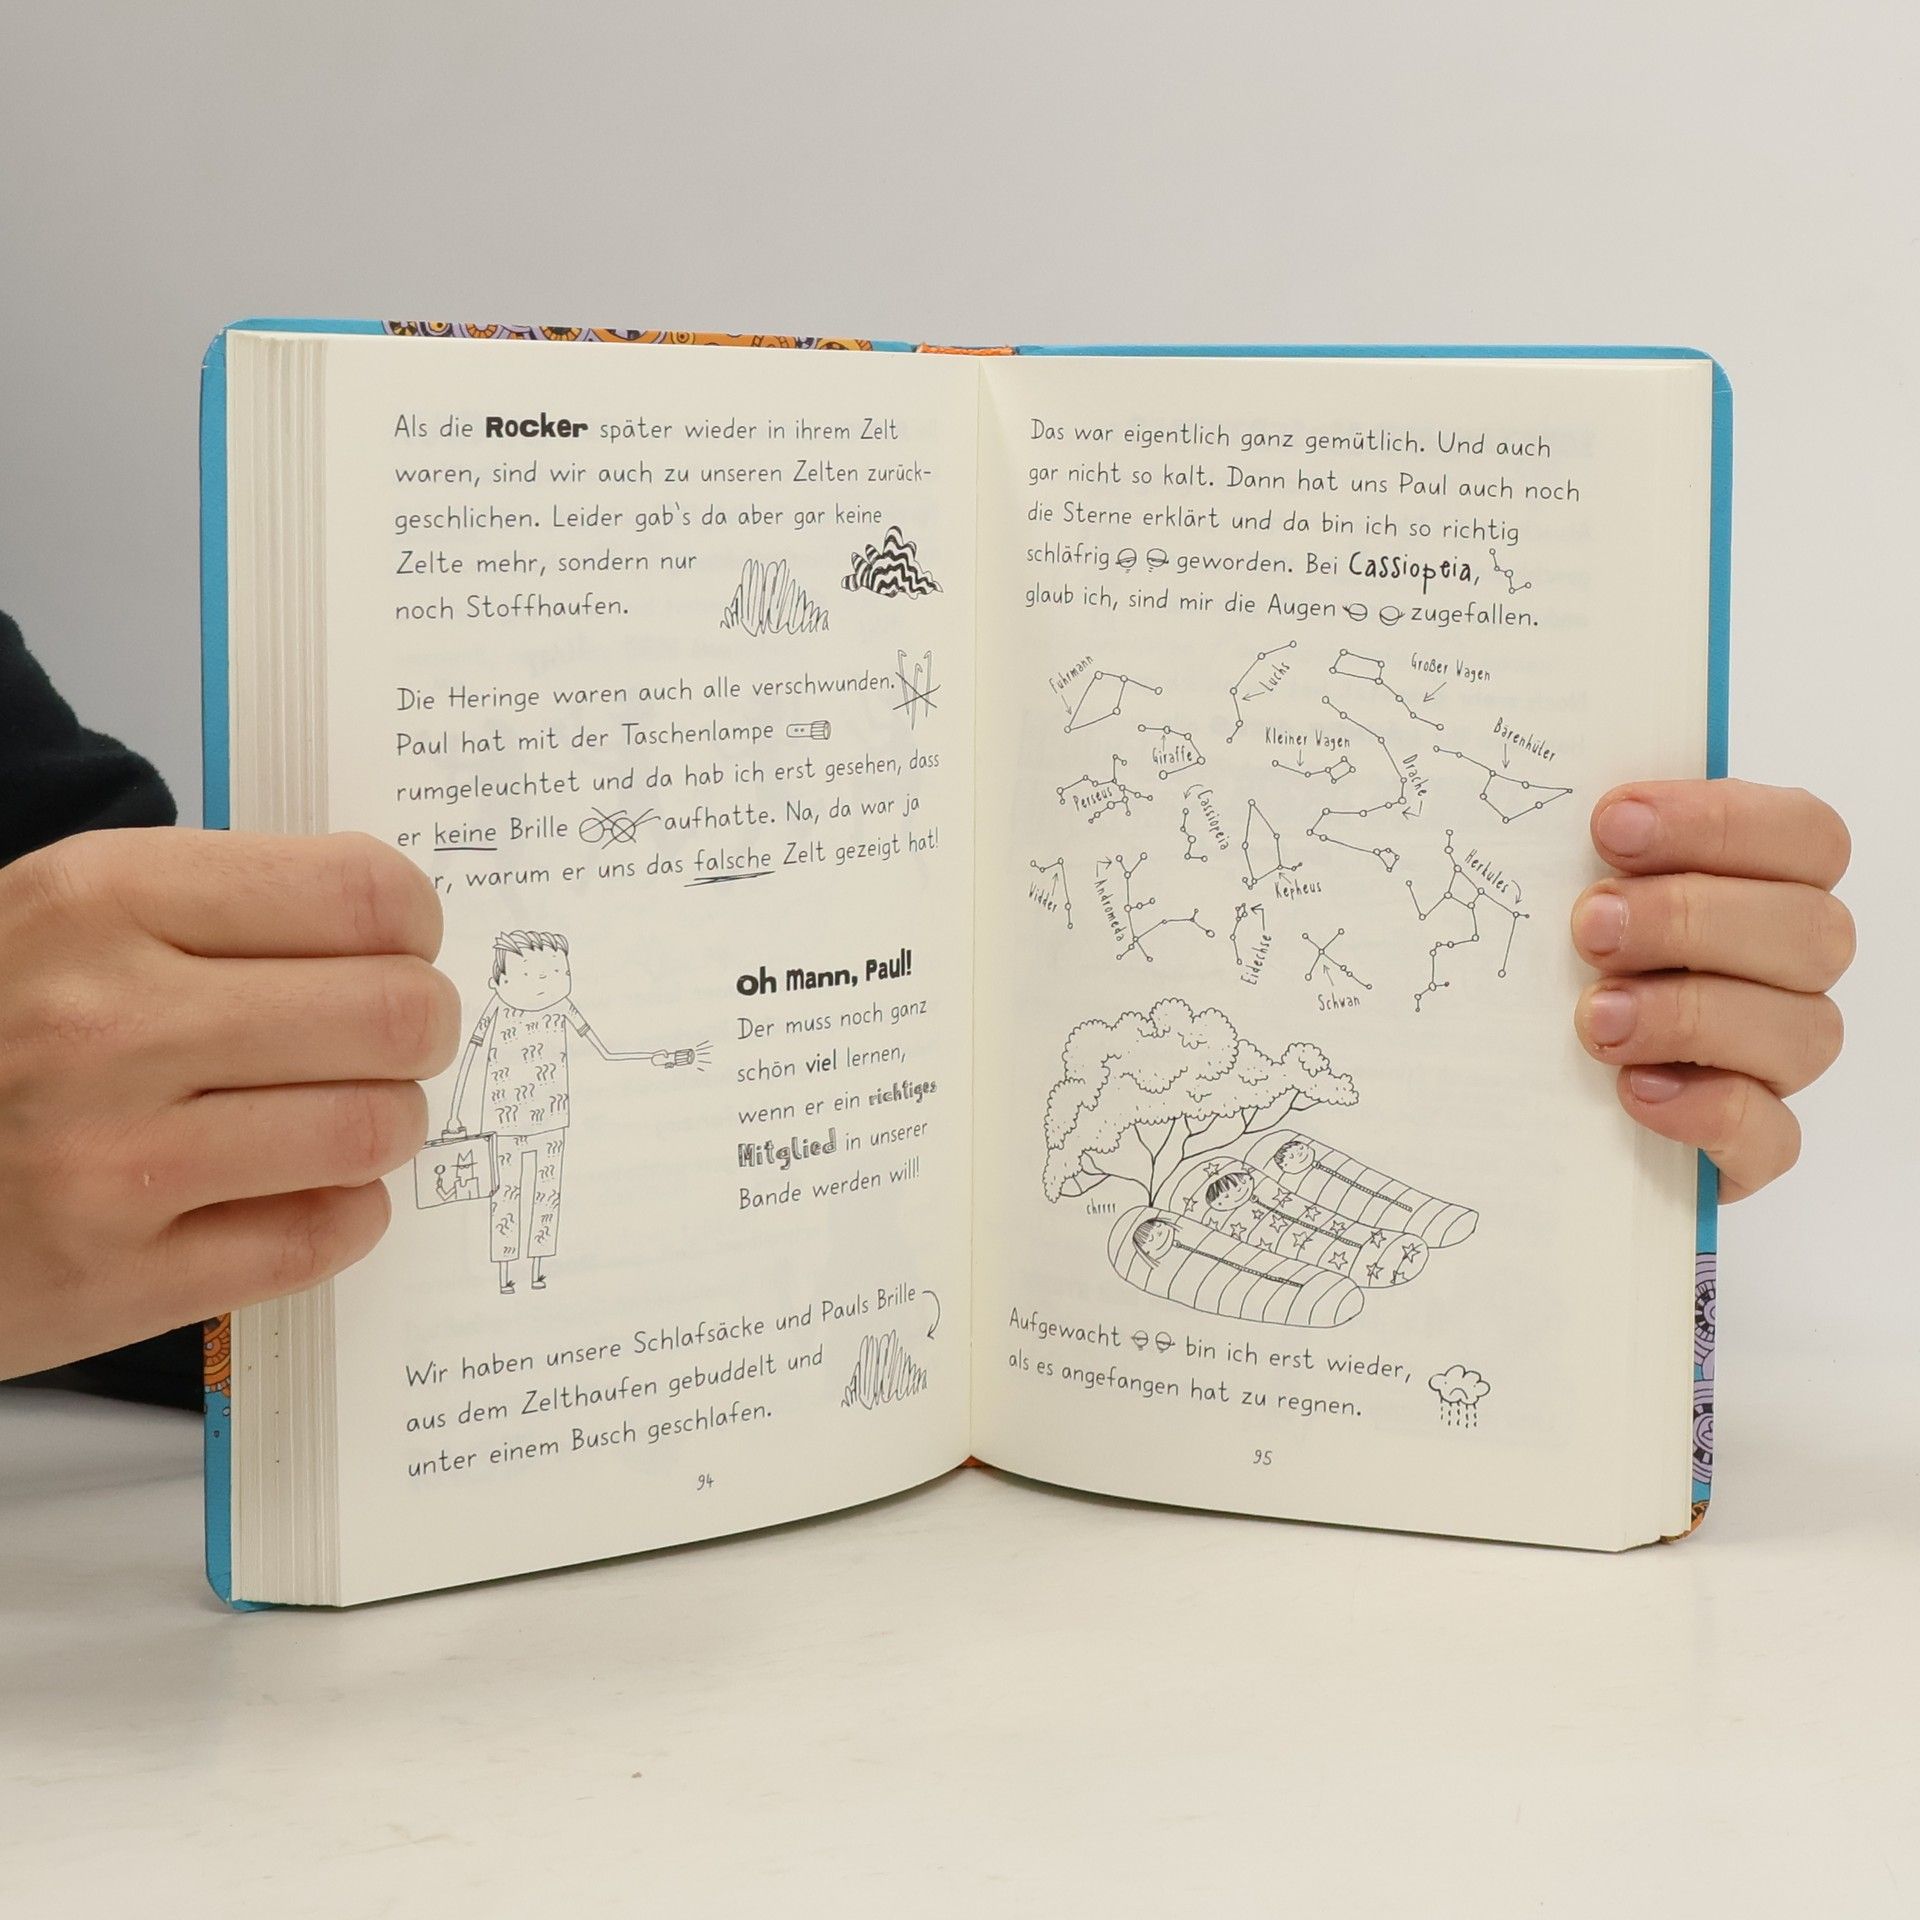 Als die Rocker später wieder in ihrem Zelt
waren, sind wir auch zu unseren Zelten zurück-
geschlichen. Leider gab's da aber gar keine
Zelte mehr, sondern nur
noch Stoffhaufen.
Die Heringe waren auch alle verschwunden.
Paul hat mit der Taschenlampe
rumgeleuchtet und da hab ich erst gesehen, dass
er keine Brille aufhatte. Na, da war ja
r, warum er uns das falsche Zelt gezeigt hat!
oh mann, Paul!
Der muss noch ganz
schön viel lernen,
wenn er ein richtiges
Mitglied in unserer
Bande werden will!
Wir haben unsere Schlafsäcke und Pauls Brille
aus dem Zelthaufen gebuddelt und
unter einem Busch geschlafen.
94
Das war eigentlich ganz gemütlich. Und auch
gar nicht so kalt. Dann hat uns Paul auch noch
die Sterne erklärt und da bin ich so richtig
schläfrig geworden. Bei Cassiopeia,
glaub ich, sind mir die Augen zugefallen.
Fuhrmann
Luchs
Großer Wagen
Giraffe
Kleiner Wagen
Bärenhüter
Drache
Perseus
Cassiopeia
Herkules
Widder
Andromeda
Kepheus
Eidechse
Schwan
chrrrr
Aufgewacht bin ich erst wieder,
als es angefangen hat zu regnen.
95